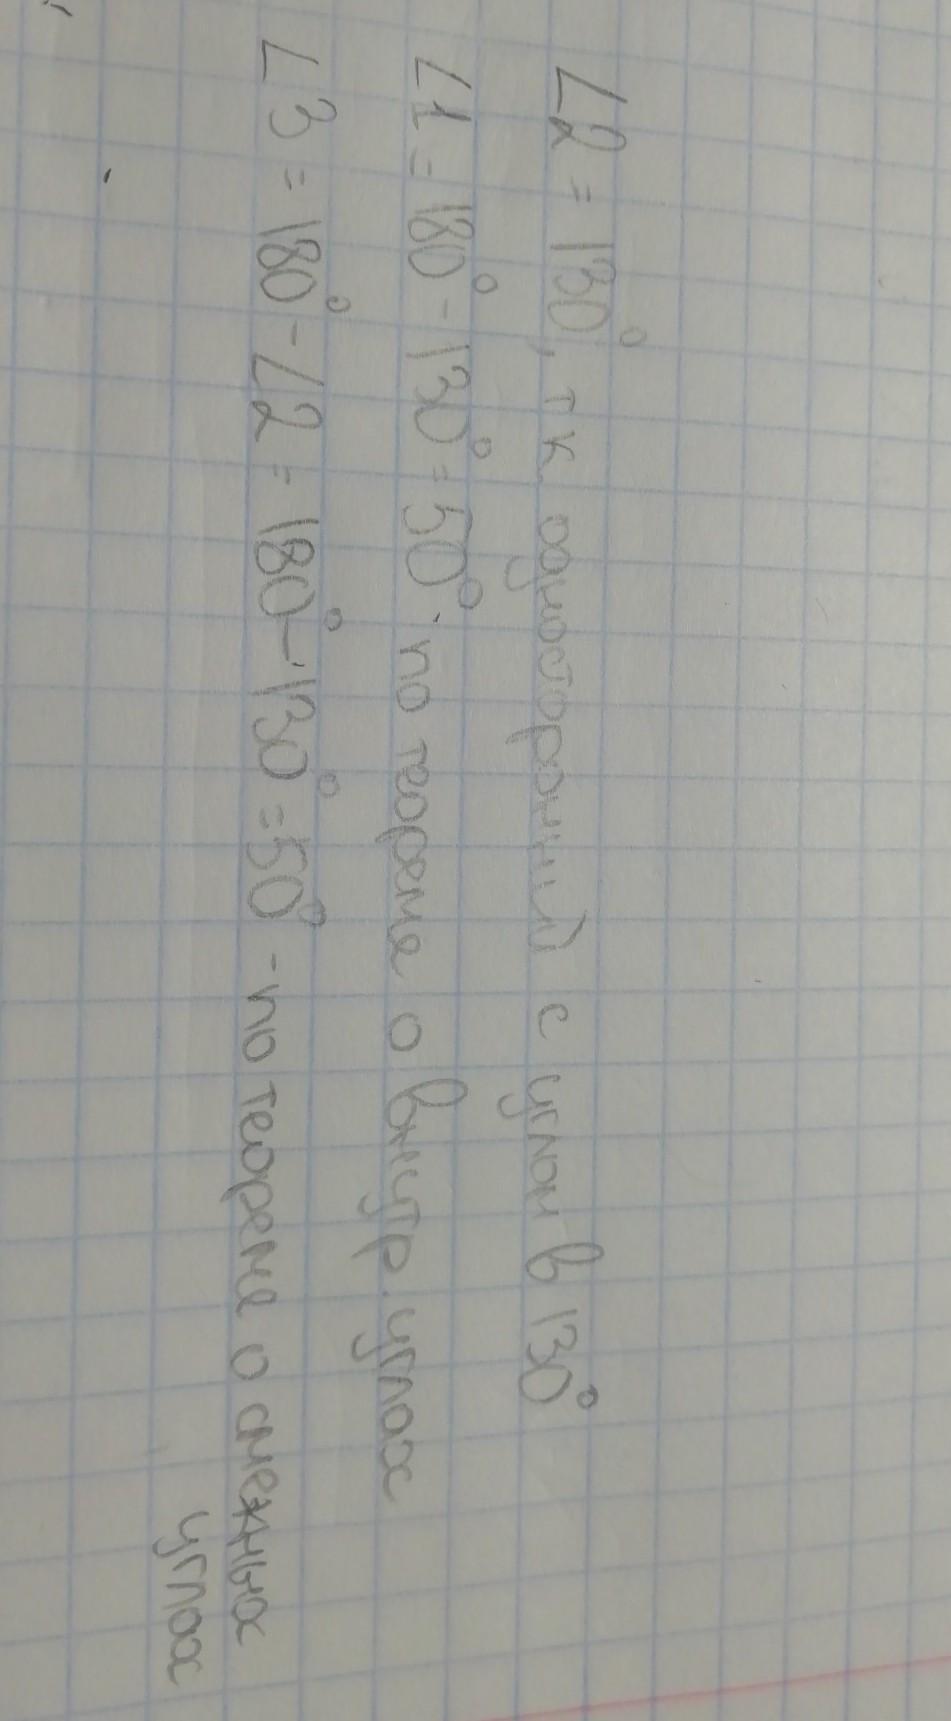 ∠2 = 130°, т к односторонний с углом в 130°
∠1 = 180° - 130° = 50° · по теореме о внутр. углах
∠3 = 180° - ∠2 = 180° - 130° = 50° - по теореме о смежных
углах